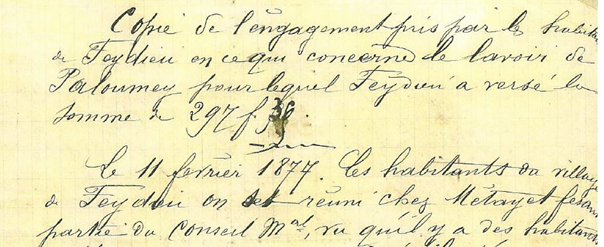 Copie de l'engagement pris par les habita
de Feydieu en ce qui concerne le lavoir de
Paloumey pour lequel Feydieu a versé la
somme de 297 f 30
Le 11 février 1877. Les habitants du village
de Feydieu on set réuni chez Métayet fesant
partie du Conseil Mal, vu qu'il y a des habitant